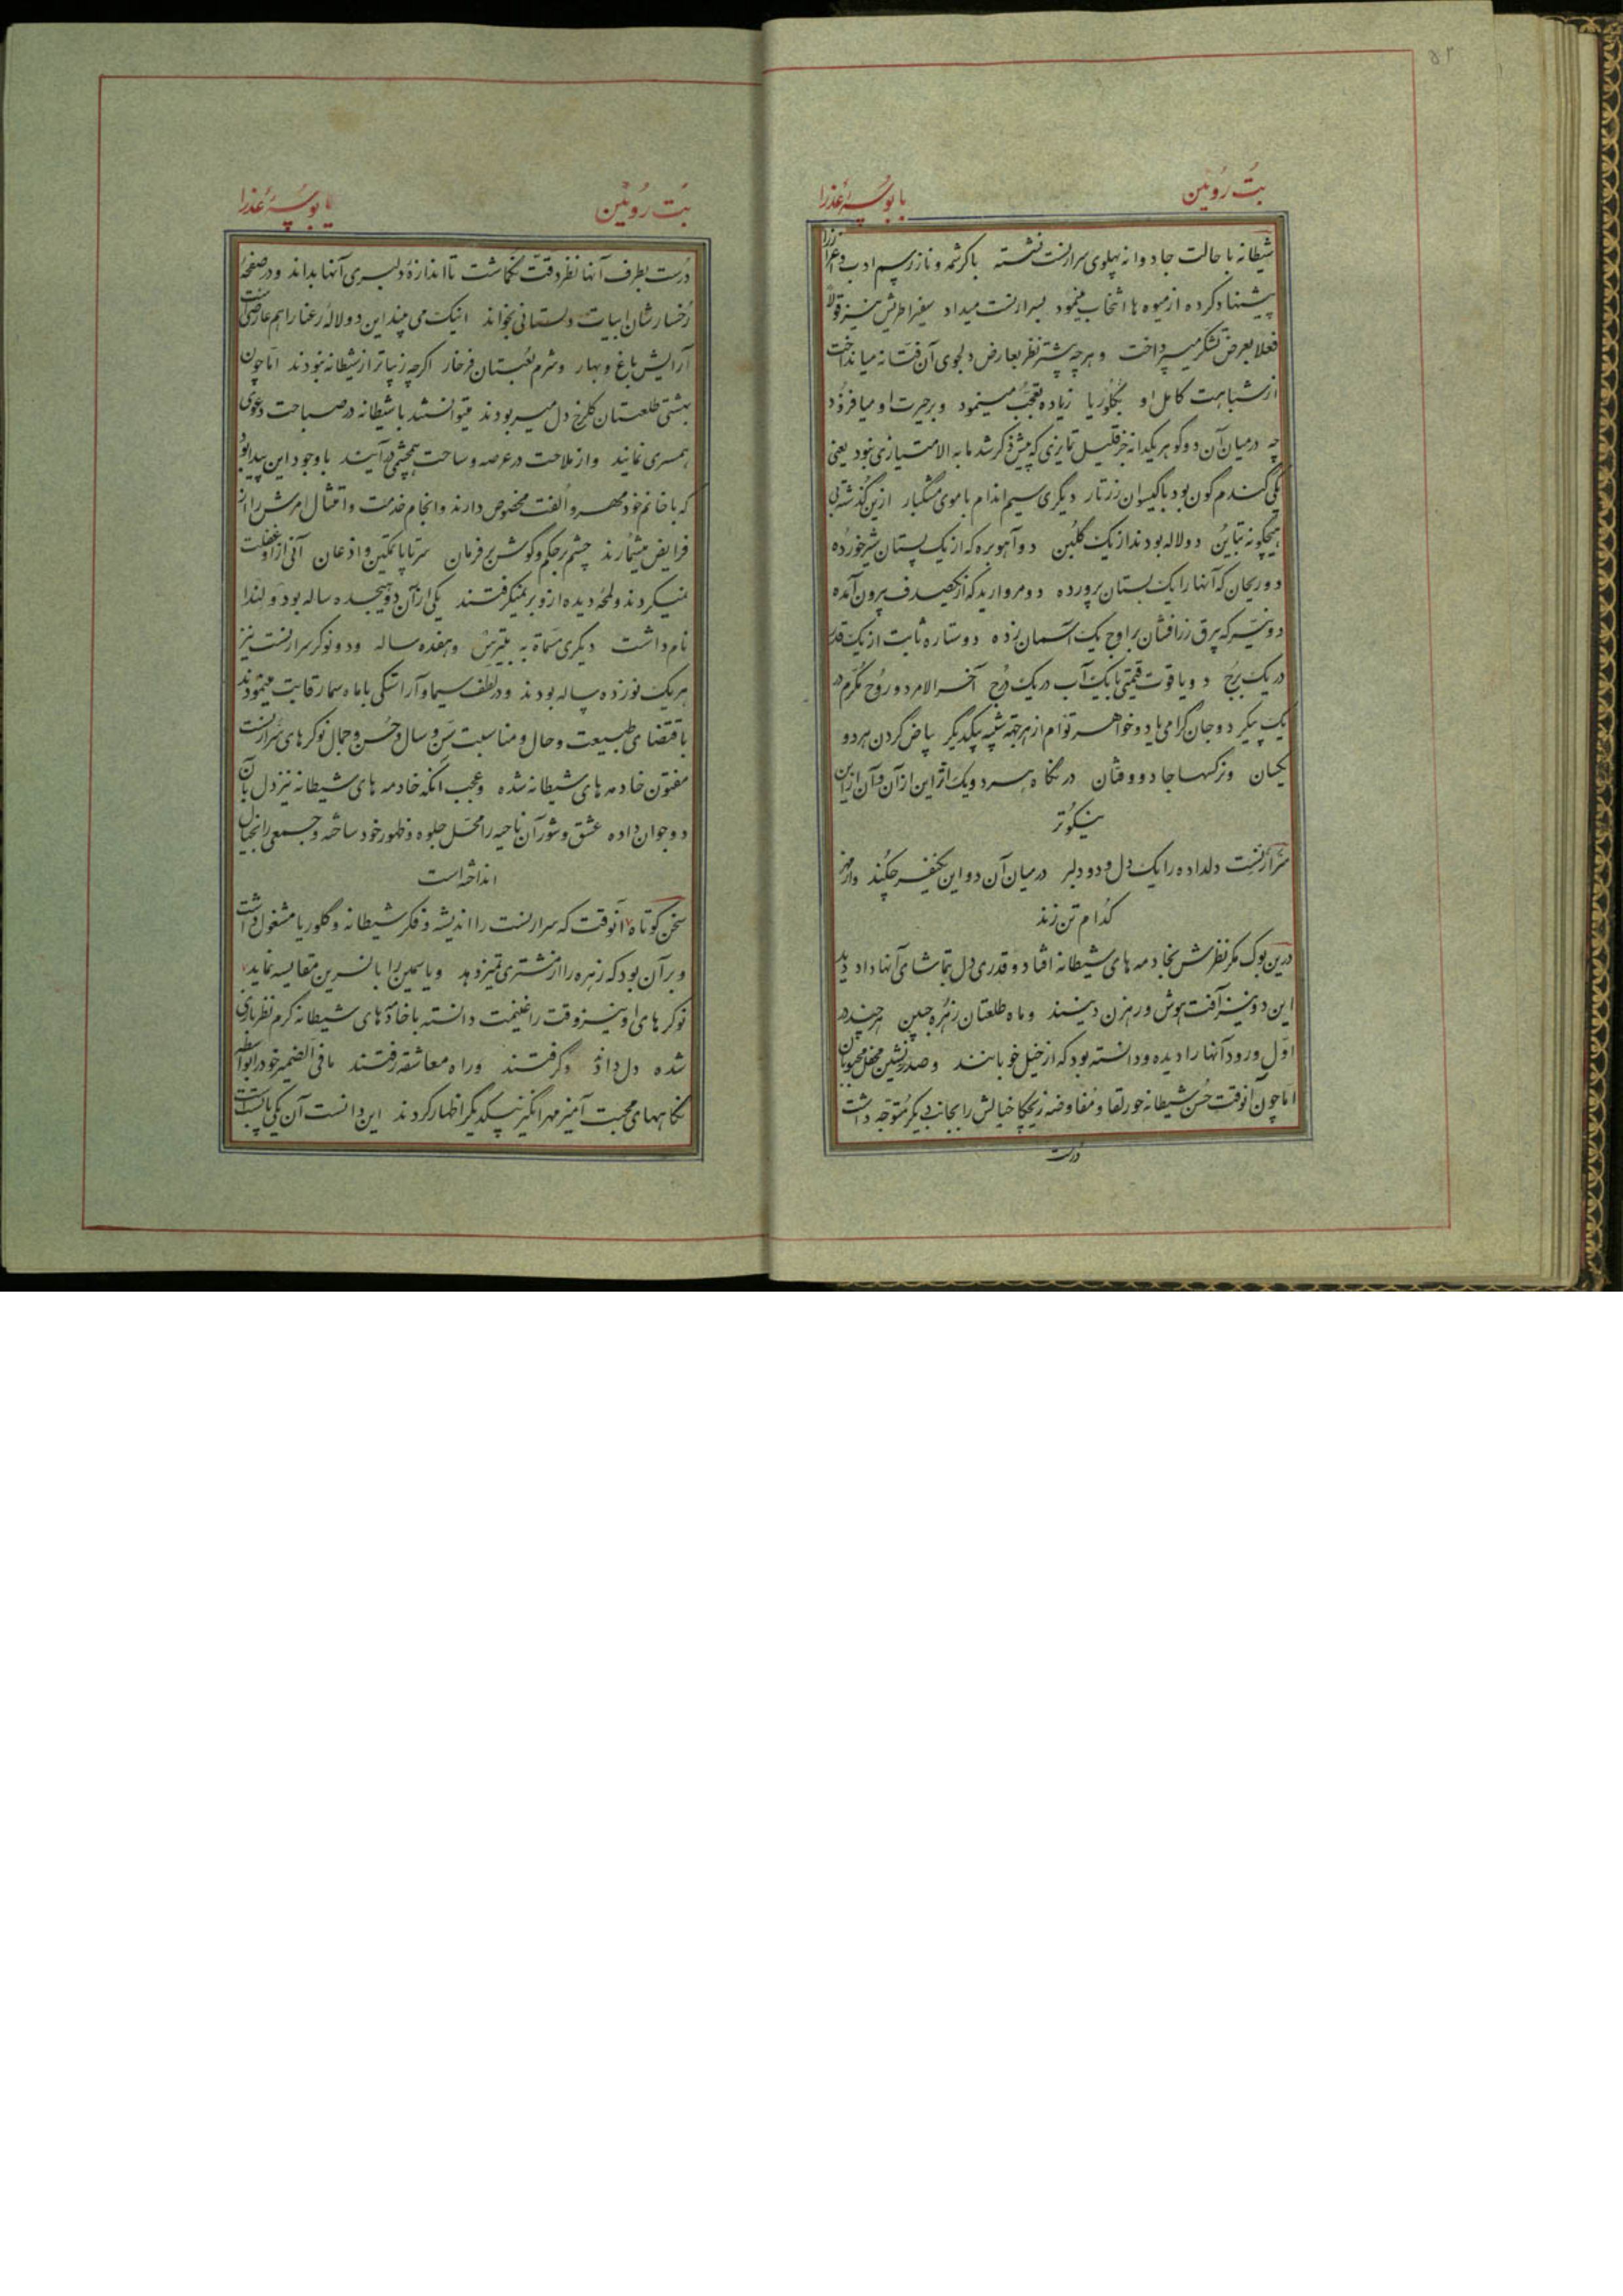 بت روئین
یا بوسهٔ عذرا
شیطانه با حالت جادوانه پهلوی سرارنست نشسته باکرشمه و ناز رسم ادب و اعزاز را
پیشنهاد کرده از میوه ها انتخاب مینمود بسرارنست میداد سفیرا طریش نیز قولا
فعلا بعرض تشکر میپرداخت و هرچه بیشتر نظر بعارض دلجوی آن فتانه میانداخت
از شباهت کامل او بگلوریا زیاده تعجب مینمود و بر حیرت او میافزود
چه در میان آن دو گوهر یکدانه جز قلیل تمایزی که پیش ذکر شد ما به الامتیازی نبود یعنی
یکی گندم گون بود باگیسوان زرتار دیگری سیم اندام با موی مشکبار ازین گذشته بی
هیچگونه تباین دولاله بودند از یک گلبن دو آهوبره که از یک پستان شیر خورده
دو ریحان که آنها را یک بستان پرورده دو مروارید که از یکصدف بیرون آمده
دو نیر که برق زرافشان بر اوج یک آسمان زده دو ستاره ثابت از یک قدر
در یک برج دو یاقوت قیمتی بایک آب در یک درج آخر الامر دو روح مکرم در
یک پیکر دو جان گرامی یا دو خواهر توأم از هر جهة شبیه بیکدیگر بیاض گردن هر دو
یکسان و نرگسها جادو و فتان در نگاه هر دو یک اثر این از آن و آن از این
نیکوتر
سرارنست دلداده را یک دل و دو دلبر در میان آن دو این یکنفر چکند و از مهر
کدام تن زند
درین بوک مگر نظرش بخادمه های شیطانه افتاد و قدری دل بتماشای آنها داد دید
این دو نیز آفت هوش و رهزن دینند و ماه طلعتان زهره جبین هر چند در
اول ورود آنها را دیده و دانسته بود که از خیل خوبانند و صدرنشین محفل محبوبان
اما چون آنوقت حسن شیطانه حور لقا و مفاوضه زلیخا خیالش را بجانب دیگر متوجه داشت
درست
بت روئین
یا بوسهٔ عذرا
درست بطرف آنها نظر دقت نگماشت تا اندازهٔ دلبری آنها بداند و در صفحهٔ
رخسارشان ابیات دلستانی بخواند اینک می بیند این دو لالهٔ رعنا را هم عارضی است
آرایش باغ و بهار و شرم لعبتان فرخار اگرچه زیباتر از شیطانه نبودند اما چون
بهشتی طلعتان گلرخ دل میربودند میتوانستند با شیطانه در صباحت دعوی
همسری نمایند و از ملاحت در عرصه و ساحت همچشمی در آیند با وجود این پیدا بود
که با خانم خود مهر و الفت مخصوص دارند و انجام خدمت و امتثال امرش را از
فرایض میشمارند چشم بر حکم و گوش بر فرمان سرتاپا تمکین و اذعان آنی از او غفلت
نمیکردند و لمحه دیده از و بر نمیگرفتند یکی از آن دو هیجده ساله بود و لندا
نام داشت دیگری مسماة به بیتریس و هفده ساله و دو نوکر سرارنست نیز
هر یک نوزده ساله بودند و در لطف سیما و آراستگی با ماه سما رقابت مینمودند
باقتضای طبیعت و حال و مناسبت سن و سال و حسن و جمال نوکرهای سرارنست
مفتون خادمه های شیطانه شده و عجب آنکه خادمه های شیطانه نیز دل بآن
دو جوان داده عشق و شور آن ناحیه را محل جلوه و ظهور خود ساخته و جمعی را بخیال
انداخته است
سخن کوتاه آنوقت که سرارنست را اندیشه و فکر شیطانه و گلوریا مشغول داشت
و بر آن بود که زهره را از مشتری تمیز دهد و یاسمین را با نسرین مقایسه نماید
نوکرهای او نیز وقت را غنیمت دانسته با خادمه های شیطانه گرم نظربازی
شده دل داد و گرفتند و راه معاشقه رفتند مافی الضمیر خود را بواسطه
نگاههای محبت آمیز مهر انگیز بیکدیگر اظهار کردند این دانست آن یکی پا بست